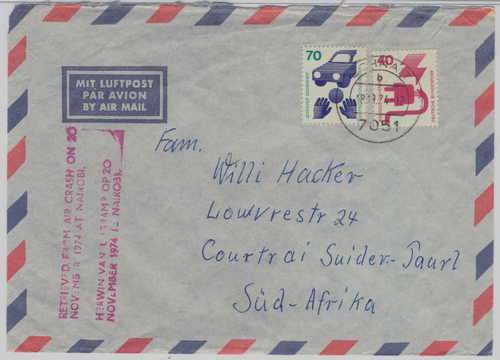 70
40
b
7051
MIT LUFTPOST
PAR AVION
BY AIR MAIL
RETRIEVED FROM AIR CRASH ON 20
NOVEMBER 1974 AT NAIROBI.
HERWIN VAN LUGRAMP OP 20
NOVEMBER 1974 NAIROBI.
Fam.
Willi Hacker
Louvrestr 24
Courtrai Suider-Paarl
Süd-Afrika